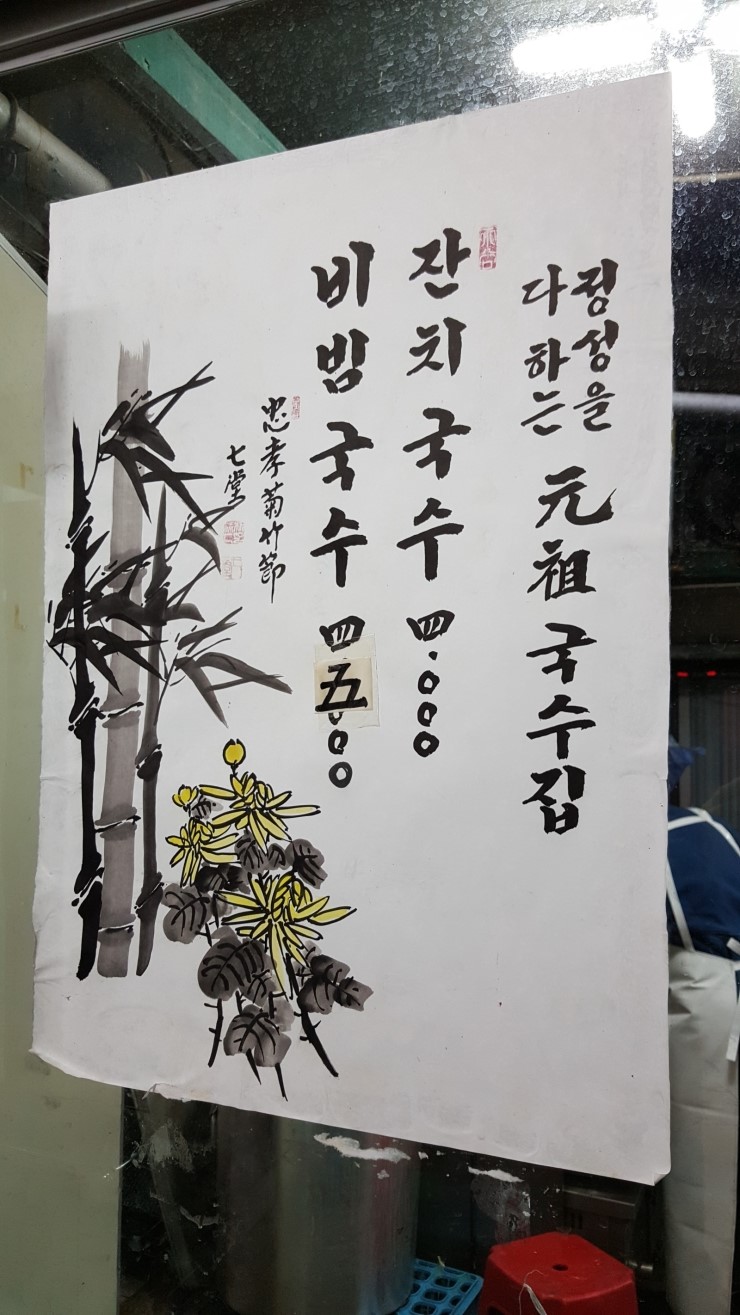 정성을
다하는
元祖 국수집
잔치국수 四.000
비빔국수 四.五00
忠孝菊竹節
七堂